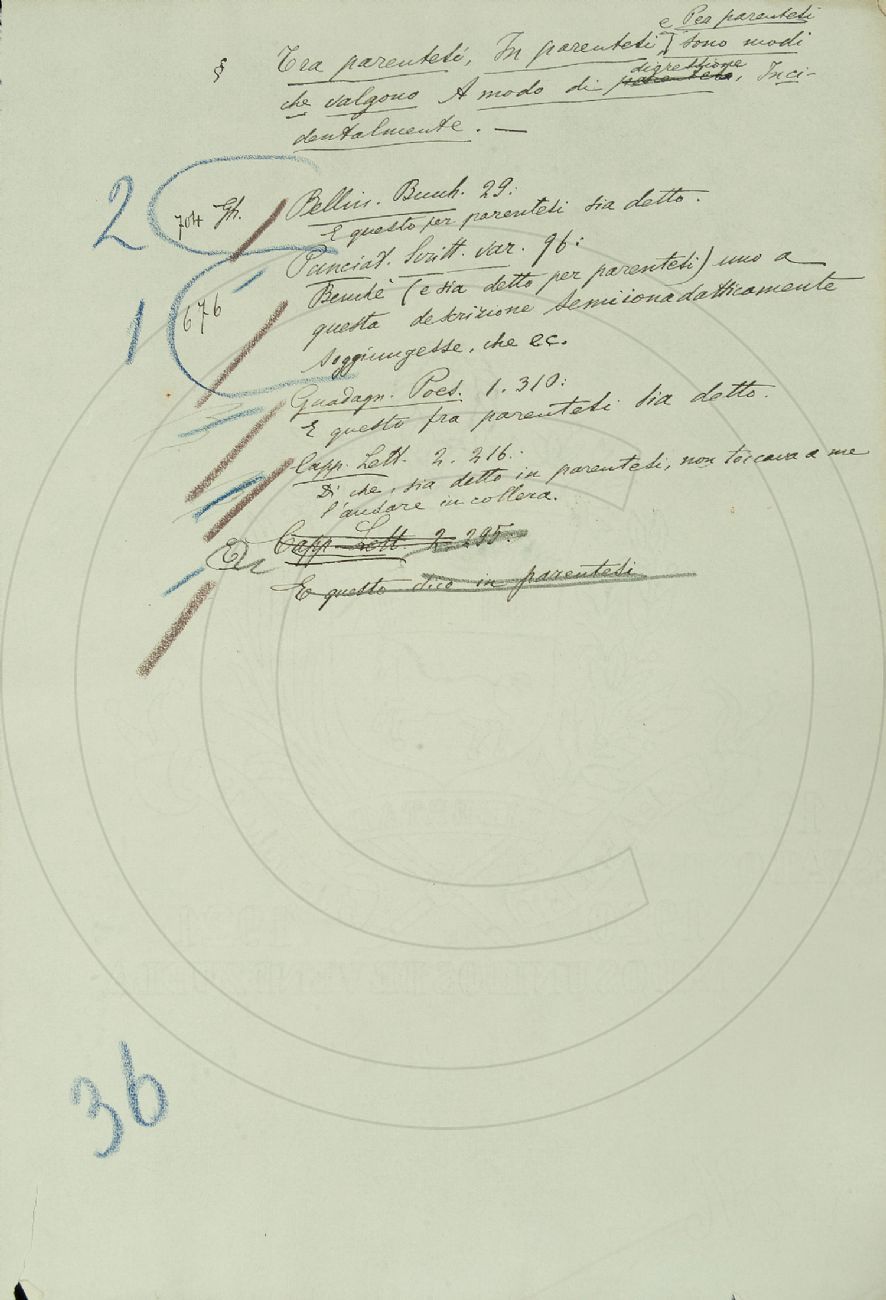 e Per parentesi
§ Tra parentesi, In parentesi, sono modi
che valgono A modo di digressione, Inci-
dentalmente. —
2
704 Gh. Bellin. Bucch. 29:
E questo per parentesi sia detto.
Panciat. Scritt. var. 96:
1
676 Benchè (e sia detto per parentesi) uno a
questa descrizione semiionadatticamente
soggiungesse, che ec.
Guadagn. Poes. 1. 310:
E questo fra parentesi sia detto.
Capp. Lett. 2. 216:
Di che, sia detto in parentesi, non toccava a me
l'andare in collera.
Capp. Lett. 2. 295:
E questo dico in parentesi
36